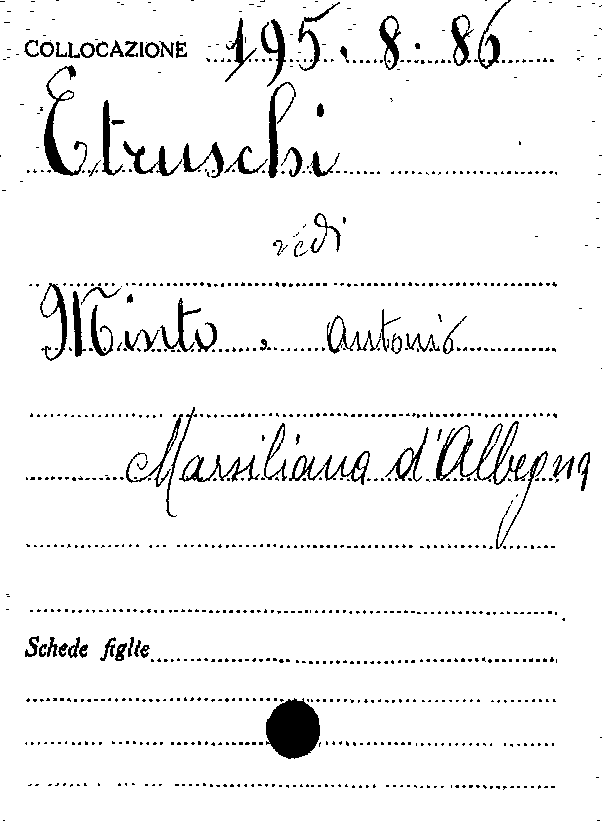 COLLOCAZIONE 195.8.86
Etruschi
vedi
Minto, Antonio
Marsiliana d'Albegna
Schede figlie